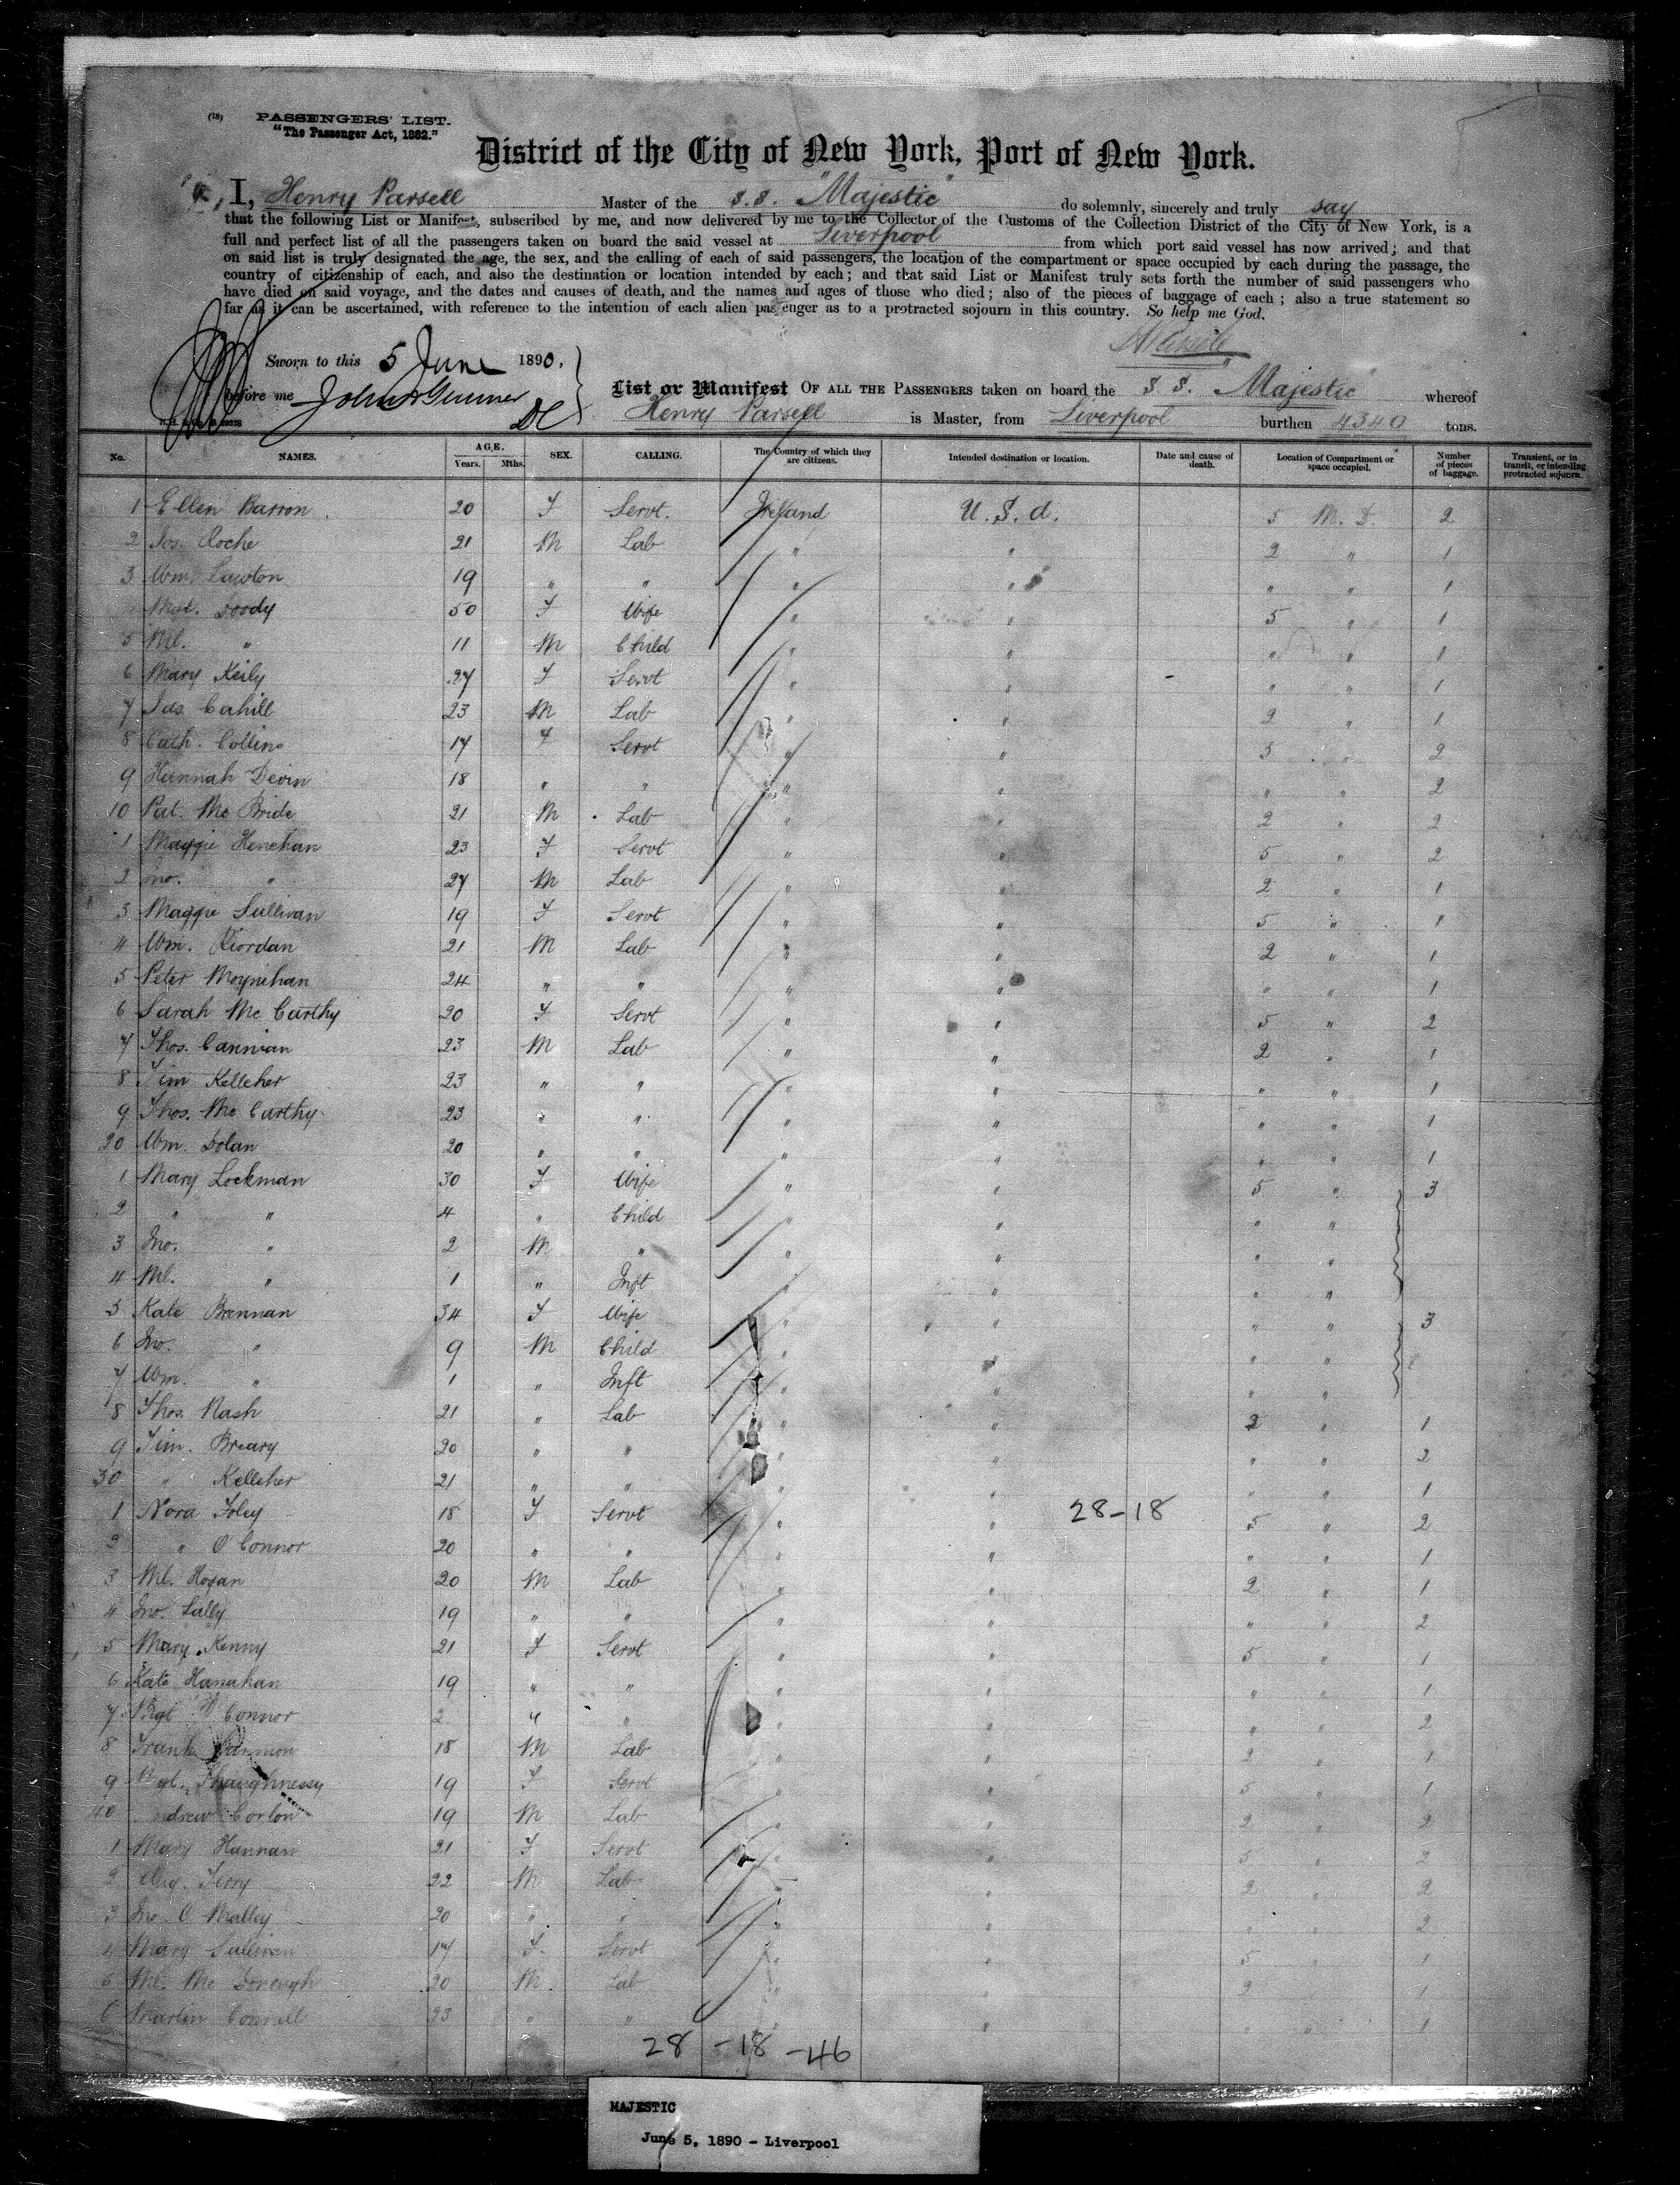 (18) PASSENGERS' LIST.
"The Passenger Act, 1882."
District of the City of New York, Port of New York.
I, Henry Parsell Master of the S.S. "Majestic" do solemnly, sincerely and truly say
that the following List or Manifest, subscribed by me, and now delivered by me to the Collector of the Customs of the Collection District of the City of New York, is a
full and perfect list of all the passengers taken on board the said vessel at Liverpool from which port said vessel has now arrived; and that
on said list is truly designated the age, the sex, and the calling of each of said passengers, the location of the compartment or space occupied by each during the passage, the
country of citizenship of each, and also the destination or location intended by each; and that said List or Manifest truly sets forth the number of said passengers who
have died on said voyage, and the dates and causes of death, and the names and ages of those who died; also of the pieces of baggage of each; also a true statement so
far as it can be ascertained, with reference to the intention of each alien passenger as to a protracted sojourn in this country. So help me God.
Sworn to this 5 June 1890,
before me John
List or Manifest OF ALL THE PASSENGERS taken on board the S.S. "Majestic" whereof
Henry Parsell is Master, from Liverpool burthen 4340 tons.
No. NAMES. AGE. Years. Mths. SEX. CALLING. The Country of which they are citizens. Intended destination or location. Date and cause of death. Location of Compartment or space occupied. Number of pieces of baggage. Transient, or in transit, or intending protracted sojourn.
1 Ellen Barron 20 F Servt. Ireland U.S.A. 5 M.D. 2
2 Jos. Roche 21 M Lab " " 2 " 1
3 Wm. Lawton 19 " " " " " " 1
Doody 50 F Wife " " 5 " 1
5 Ml. " 11 M Child " " " " 1
6 Mary Keily 27 F Servt " " " " 1
7 Jas. Cahill 23 M Lab " " 2 " 1
8 Cath. Collins 17 F Servt " " 5 " 2
9 Hannah Devin 18 " " " " " " 2
10 Pat. Mc Bride 21 M Lab " " 2 " 2
1 Maggie Henehan 23 F Servt " " 5 " 2
2 Jno. " 27 M Lab " " 2 " 1
3 Maggie Sullivan 19 F Servt " " 5 " 1
4 Wm. Riordan 21 M Lab " " 2 " 1
5 Peter Moynihan 24 " " " " " " 1
6 Sarah Mc Carthy 20 F Servt " " 5 " 2
7 Thos. Cannian 23 M Lab " " 2 " 1
8 Tim Kelleher 23 " " " " " " 1
9 Thos. Mc Carthy 23 " " " " " " 1
20 Wm. Dolan 20 " " " " " " 1
1 Mary Lockman 30 F Wife " " 5 " 3
2 " " 4 " Child " " " "
3 Jno. " 2 M " " " " "
4 Ml. " 1 " Inft " " " "
5 Kate Brennan 34 F Wife " " " " 3
6 Jno. " 9 M Child " " " "
7 Wm. " 1 " Inft " " " "
8 Thos. Nash 21 " Lab " " 2 " 1
9 Tim. Breary 20 " " " " " " 2
30 " Kelleher 21 " " " " " " 1
1 Nora Foley 18 F Servt " " 28-18 5 " 2
2 " O Connor 20 " " " " " " 1
3 Ml. Hogan 20 M Lab " " 2 " 1
4 Jno. Lally 19 " " " " " " 2
5 Mary Kenny 21 F Servt " " 5 " 1
6 Kate Hanahan 19 " " " " " " 1
7 Bgt O Connor 2 " " " " " " 2
8 Frank 18 M Lab " " 2 " 1
9 Shaughnessy 19 F Servt " " 5 " 1
40 ndrew Corlon 19 M Lab " " 2 " 2
1 Mary Hannan 21 F Servt " " 5 " 2
2 Terry 22 M Lab " " 2 " 2
3 Jno. O Malley 20 " " " " " " 2
4 Mary Sullivan 17 F Servt " " 5 " 1
5 Ml. Mc Donough 20 M Lab " " 2 " 1
6 Martin Connell 23 " " " " " " 1
28 -18 -46
MAJESTIC
June 5, 1890 - Liverpool